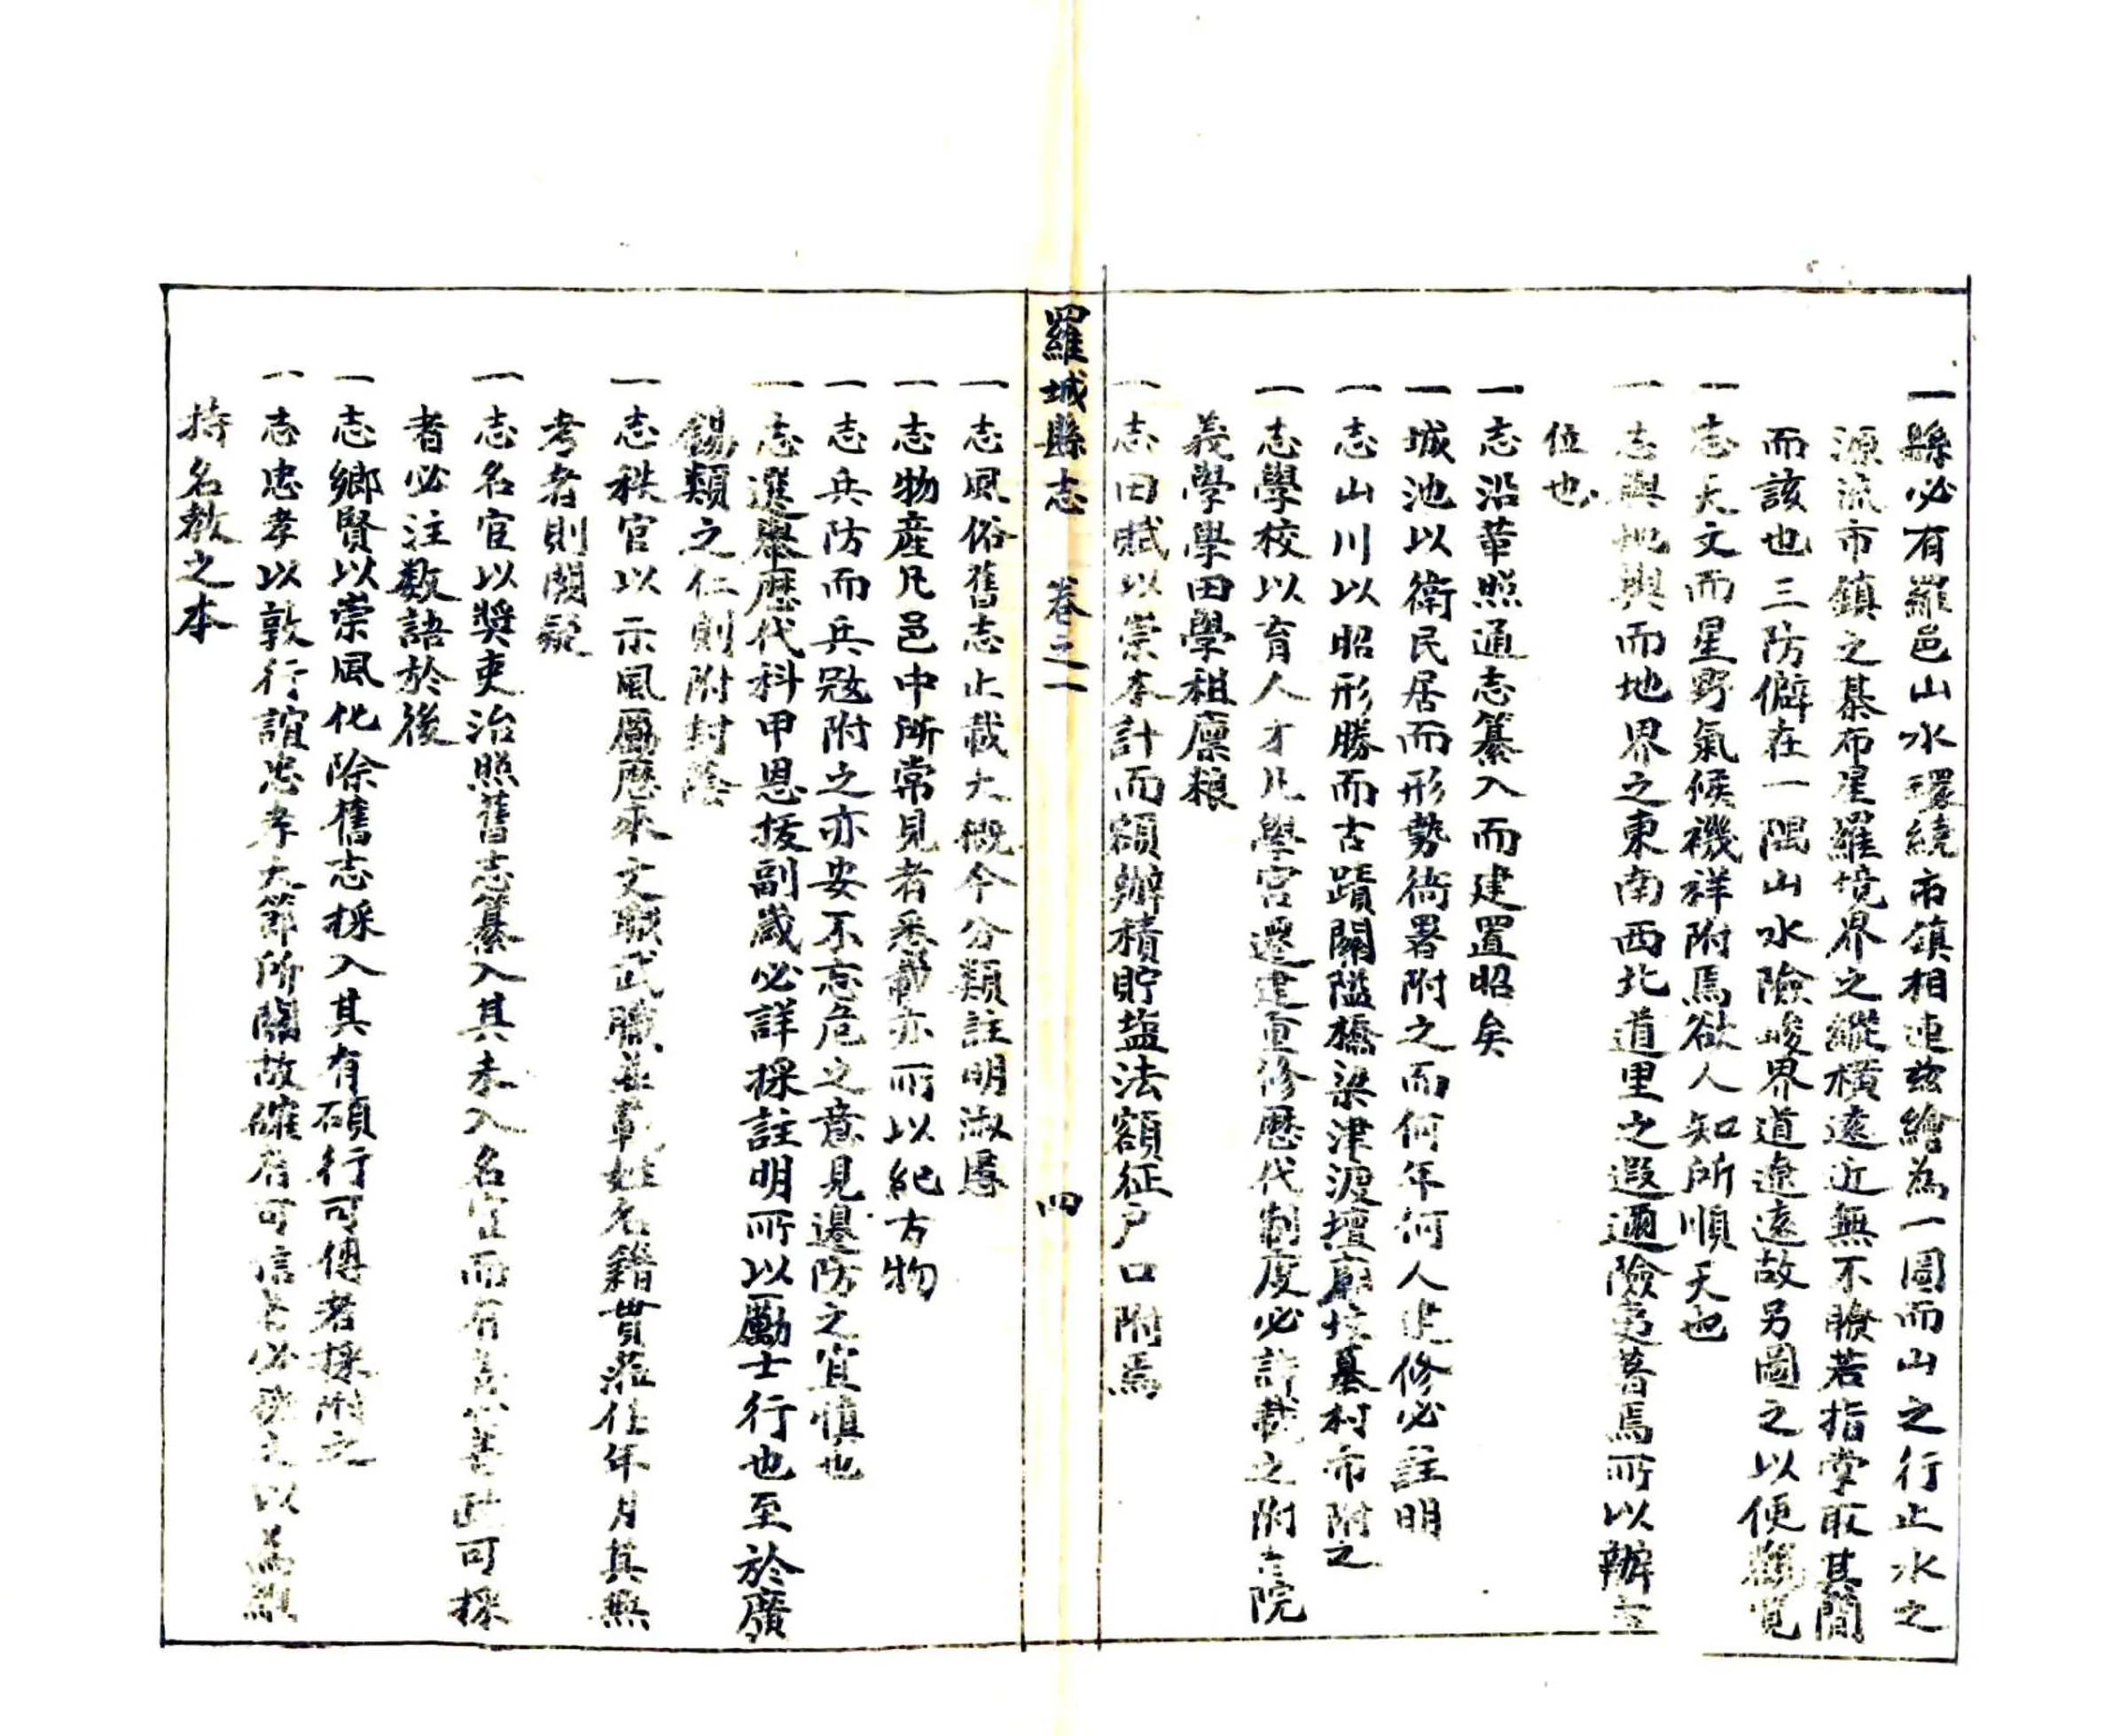 一縣必有羅邑山水環繞市鎮相連兹繪為一圖而山之行止水之
源流市鎮之棊布星羅境界之縱橫遠近無不瞭若指掌取其簡
而該也三防僻在一隅山水險峻界道遼遠故另圖之以便觀覽
一志天文而星野氣候禨祥附焉欲人知所順天也
一志輿地輿而地界之東南西北道里之遐邇險夷著焉所以辦
位也
一志沿革照通志纂入而建置昭矣
一城池以衛民居而形勢衙署附之而何年何人建修必註明
一志山川以昭形勝而古蹟關隘橋梁津渡壇廟坟墓村市附之
一志學校以育人才凡學宮遷建重修歷代制度必詳載之附書院
義學學田學租廪粮
一志田賦以崇本計而額辦積貯塩法額征户口附焉
羅城縣志 卷之一 四
一志風俗舊志止載大概今分類註明淑慝
一志物産凡邑中所常見者悉載亦所以紀方物
一志兵防而兵寇附之亦安不忘危之意見邊防之宜慎也
一志選舉歷代科甲恩拔副歲必詳採註明所以勵士行也至於廣
錫類之仁則附封蔭
一志秩官以示風厲歷來文職武職並載姓名籍貫蒞任年月其無
考者則闕疑
一志名宦以奬吏治照舊志纂入其未入名宦而有善政可採
者必注数語於後
一志鄉賢以崇風化除舊志採入其有碩行可傳者採附之
一志忠孝以敦行誼忠孝大節所關故確有可信者必以為維
持名教之本